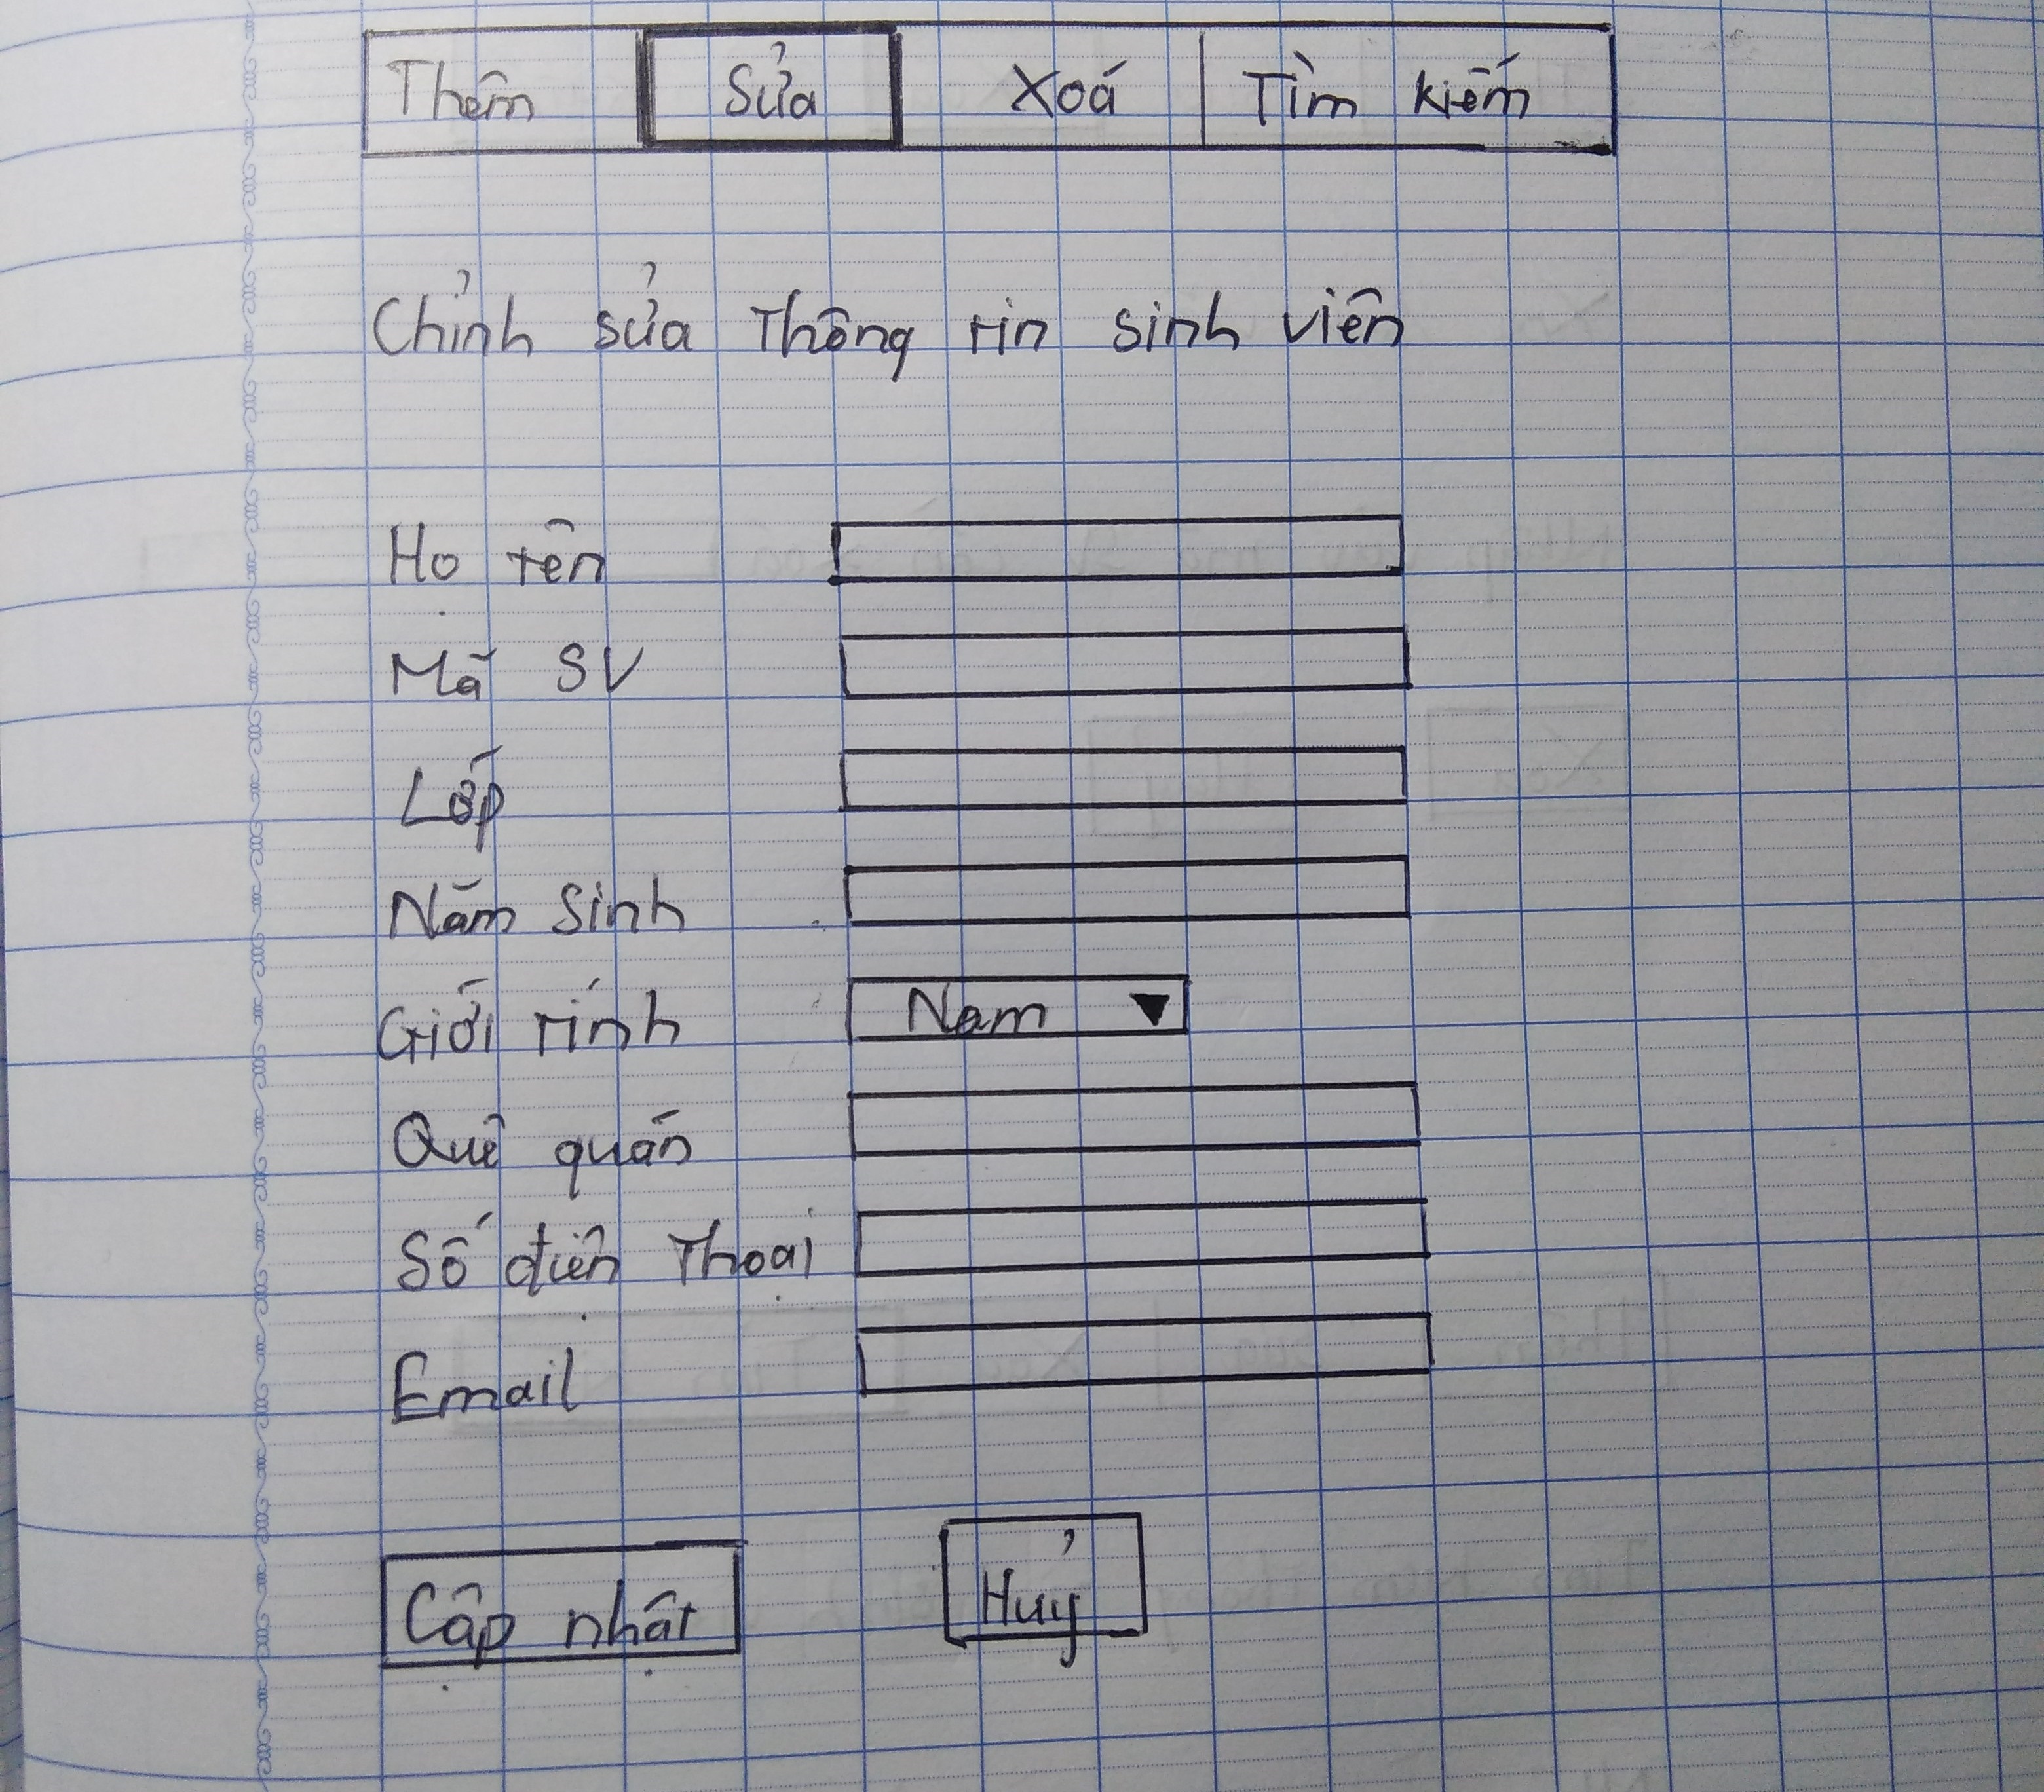 Thêm Sửa Xoá Tìm kiếm
Chỉnh sửa Thông tin sinh viên
Họ tên
Mã SV
Lớp
Năm Sinh
Giới tính Nam ▼
Quê quán
Số điện Thoại
Email
Cập nhật Huỷ